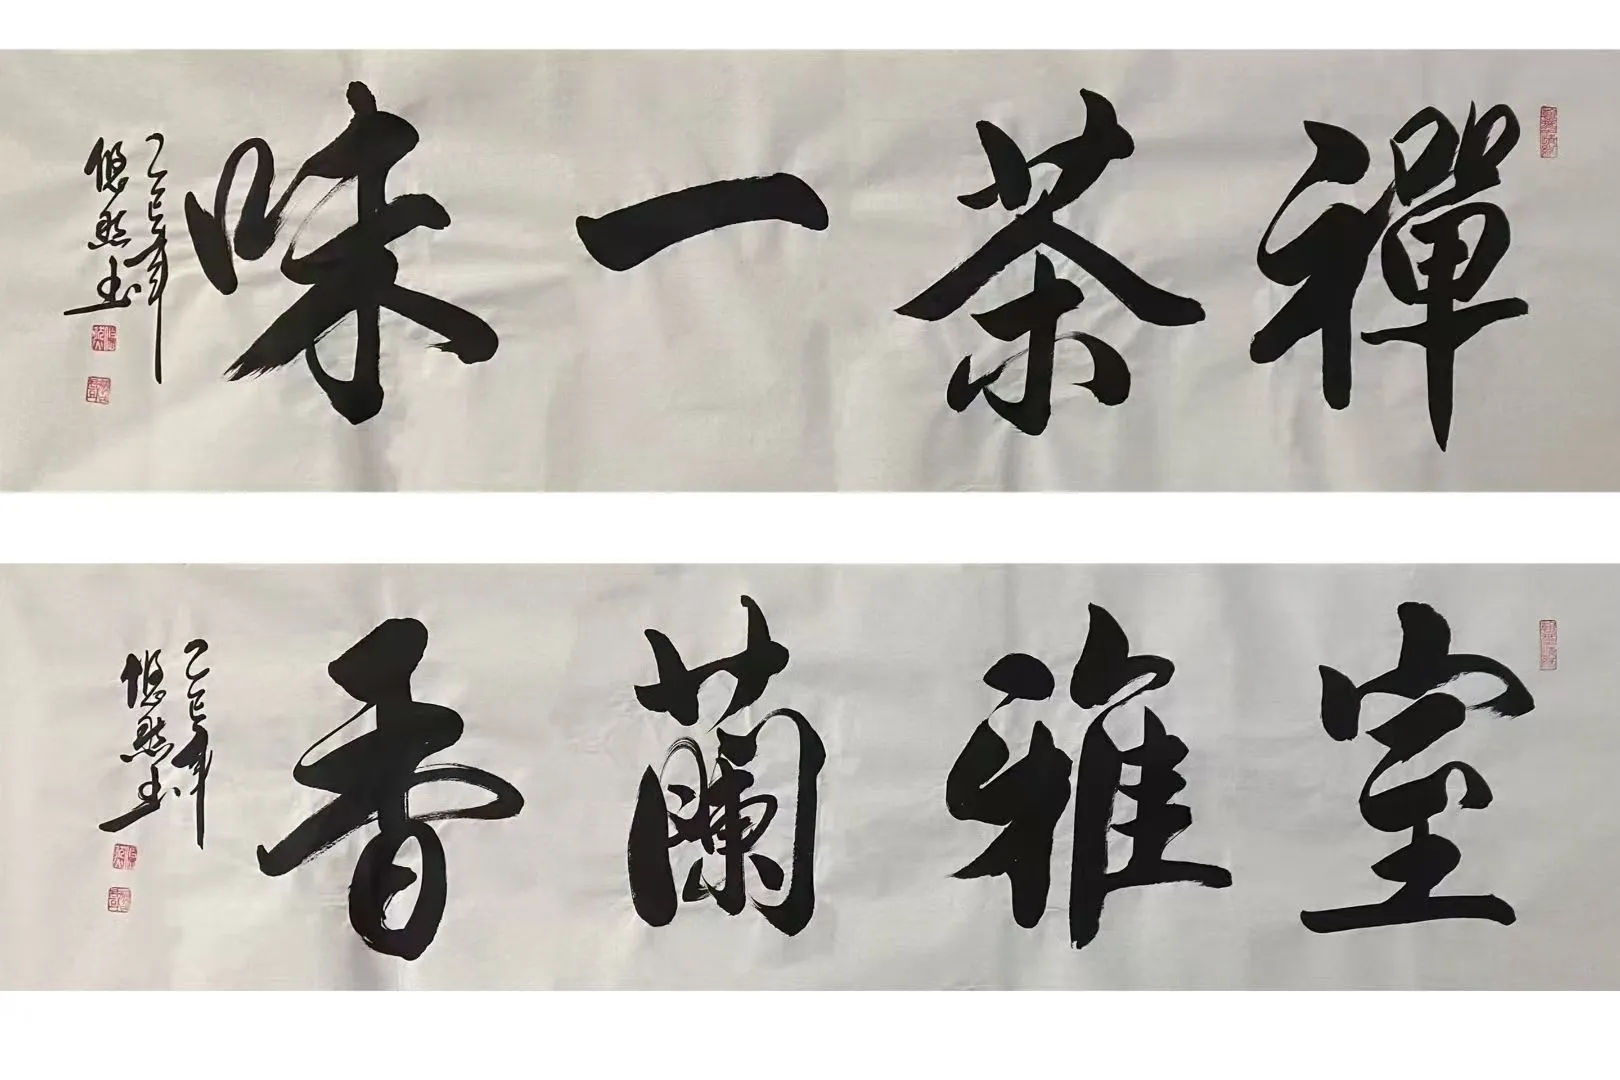 禪茶一味
乙巳年
悠然书
室雅蘭香
乙巳年
悠然书